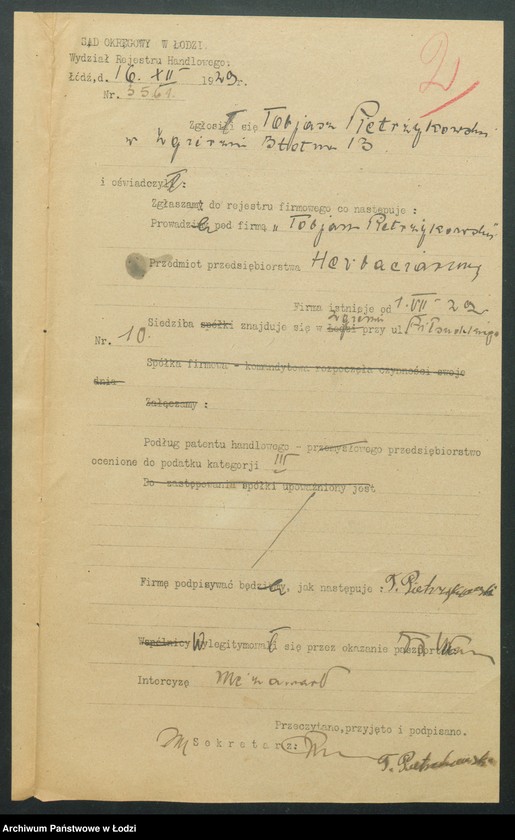 SĄD OKRĘGOWY W ŁODZI.
Wydział Rejestru Handlowego.
Łódź, d. 16. XII 1929r.
Nr. 3561.
2
Zgłosił się Tobjasz Pietrzykowski
w Zgierzu 13
i oświadczył:
Zgłaszam do rejestru firmowego co następuje :
Prowadzę pod firmą „Tobjasz Pietrzykowski"
Przedmiot przedsiębiorstwa Herbaciarnia
Firma istnieje od 1. VII - 29
Siedziba spółki znajduje się w Łodzi Zgierzu przy ul. Piłsudskiego
Nr. 10.
Spółka firmowa - komandytowa rozpoczęła czynności swoje
dnia
Załączamy :
Podług patentu handlowego - przemysłowego przedsiębiorstwo
ocenione do podatku kategorji III
Do zastępowania spółki upoważniony jest
Firmę podpisywać będę, jak następuje : T. Pietrzykowski
Wspólnicy Wylegitymował się przez okazanie
Intercyzę nie zawarł
Przeczytano, przyjęto i podpisano.
Sekretarz:
T. Pietrzykowski
Archiwum Państwowe w Łodzi